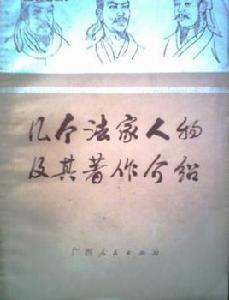 几个法家人物
及其著作介绍
广西人民出版社